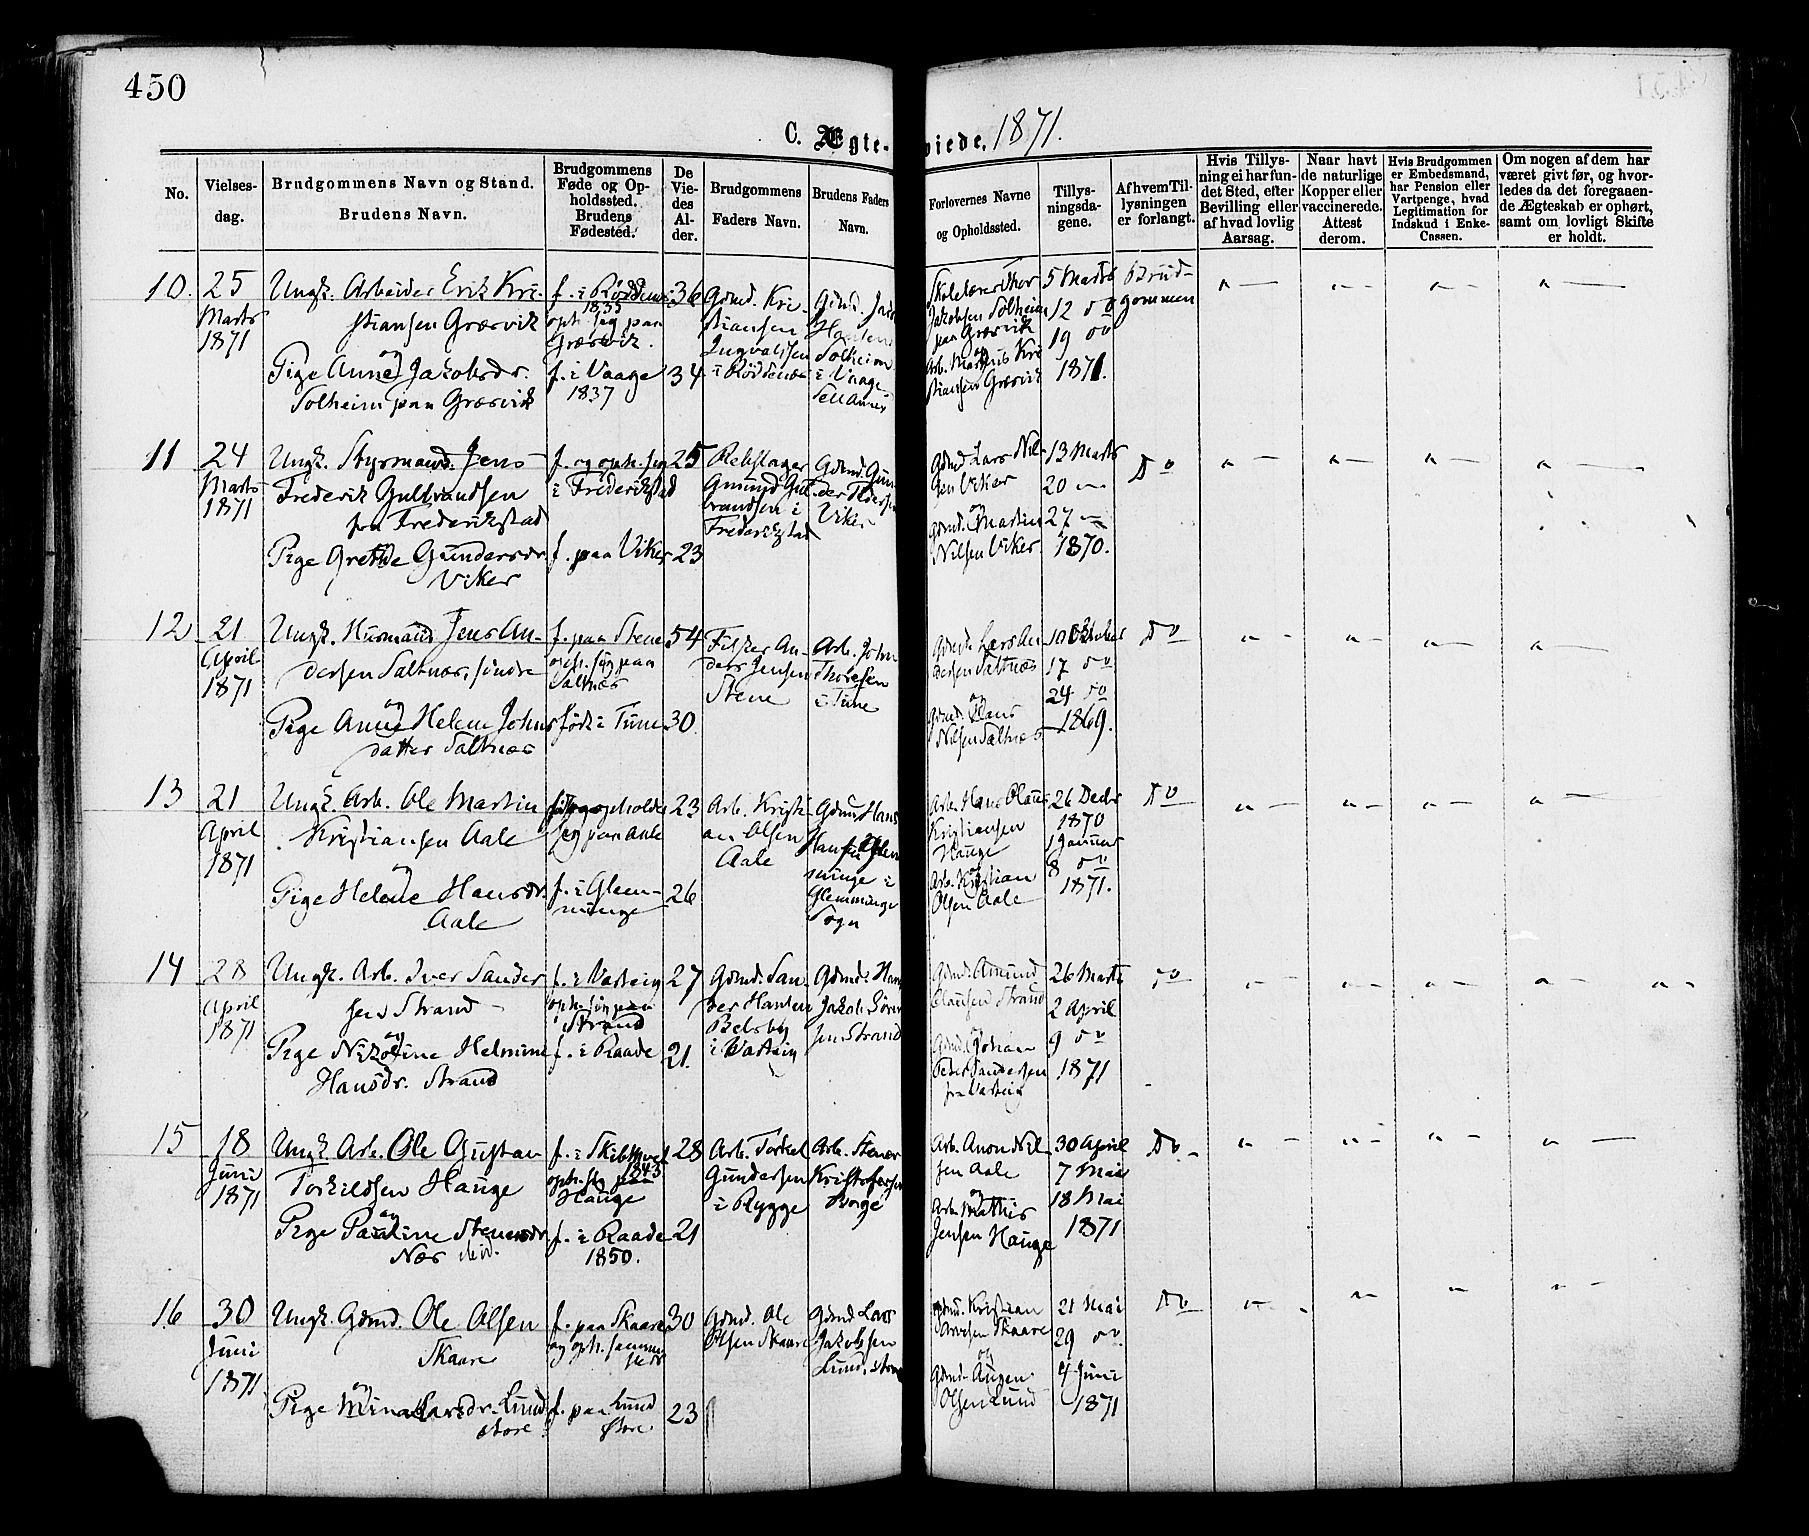 450
C. Ægte-viede. 1871.
No.
Vielses-
dag.
Brudgommens Navn og Stand.
Brudens Navn.
Brudgommens
Føde og Op-
holdssted.
Brudens
Fødested.
De
Vie-
des
Al-
der.
Brudgommens
Faders Navn.
Brudens Faders
Navn.
Forlovernes Navne
og Opholdssted.
Tillys-
ningsda-
gene.
Af hvem Til-
lysningen
er forlangt.
Hvis Tillys-
ning ei har fun-
det Sted, efter
Bevilling eller
af hvad lovlig
Aarsag.
Naar havt
de naturlige
Kopper eller
vaccinerede.
Attest
derom.
Hvis Brudgommen
er Embedsmand,
har Pension eller
Vartpenge, hvad
Legitimation for
Indskud i Enke-
Cassen.
Om nogen af dem har
været givt før, og hvor-
ledes da det foregaaen-
de Ægteskab er ophørt,
samt om lovligt Skifte
er holdt.
10.
25
Marts
1871
Ungk. Arbeider Erik Kri-
stiansen Græsvik
og
Pige Anne Jakobsdr.
Solheim paa Græsvik
f. i Röddenæs
1835
oph. sig paa
Græsvik.
f. i Vaage
1837
36
34
Gdmd. Kri-
stiansen
Ingvaldsen
i Röddenæs
Gdmd. Jac
Solheim
i Vaage
Skolelærer Thor
Jakobsen Solheim
paa Græsvik
og
Arb. Mathis Kri
stiansen Græsvik
5 Marts
12 do
19 do
1871.
Brud-
gommen
11
24
Marts
1871
Ungk. Styrmand. Jens
Frederik Gulbrandsen
fra Frederikstad
Pige Grethe Gundersdr
Viker
f. og oph. sig
i Frederikstad
f. paa Viker
25
23
Rebslager
Gmund Gul
brandsen i
Frederikstad
Gdmd. Gun
der Pedersen
Viker
Gdmd Lars Nil-
sen Viker
og
Gdmd. Martin
Nilsen Viker.
13 Marts
20 —
27 —
1870.
Do
12
21
April
1871
Ungk. Husmand Jens An-
dersen Saltnæs, søndre
og
Pige Anne Helene Johns
datter Saltnæs
f. paa Stene
oph. sig paa
Saltnæs
född i Tune
54
30
Fisker An-
ders Jensen
Stene
Arb. John
Thoresen
i Tune
Gdmd. Lars An
dersen Saltnæs
og
Gdmd. Hans
Nilsen Saltnæs
10 Oktober
17 do
24 do
1869.
Do
13
21
April
1871
Ungk. Arb. Ole Martin
Kristiansen Aale
og
Pige Helene Hansdr.
Aale
opholder
sig paa Aale
f. i Gleem-
minge
23
26
Arb. Kristi-
an Olsen
Aale
Gdmd Hans
Hansen Glem
minge i
Glemminge
Sogn
Arb. Hans Olaus
Kristiansen
Hauge
og
Arb. Kristian
Olsen Aale
26 Decbr
1870
1 Januar
8 do
1871.
Do
14
28
April
1871
Ungk. Arb. Iver Sander
sen Strand
og
Pige Nikoline Helmine
Hansdr. Strand
f. i Varteig
oph. sig paa
Strand
f. i Raade
27
21.
Gdmd. San-
der Hansen
Belsby
i Varteig
Gdmd. Han
Jakob Sören
sen Strand
Gdmd. Amund
Clausen Strand
og
Gdmd. Johan
Peter Sandersen
fra Varteig
26 Marts
2 April
9 do
1871
do
15
18
Juni
1871
Ungk Arb. Ole Gustav
Torkildsen Hauge
og
Pige Pauline Stenersdr
Næs
f. i Skibtvet
1843
oph. sig paa
Hauge
f. i Raade
1850.
28
21
Arb. Torkel
Gundersen
i Rygge
Arb. Stener
Kristofersen
Borge
Arb. Anon Nil
sen Aale
og
Arb. Mathis
Jensen Hauge
30 April
7 Mai
18 Mai
1871
Do.
16
30
Juni
1871
Ungk. Gdmd. Ole Olsen
Skaare
og
Pige Mina Larsdr. Lund
store
f. paa Skaare
og oph. samme
sted
f. paa Lund
Store
30
23
Gdmd. Ole
Olsen Skaare
Gdmd Lars
Jakobsen
Lund, store
Gdmd. Kristian
Arvesen Skaare
og
Gdmd. Augen
Olsen Lund
21 Mai
29 do.
4 Juni
1871
Do